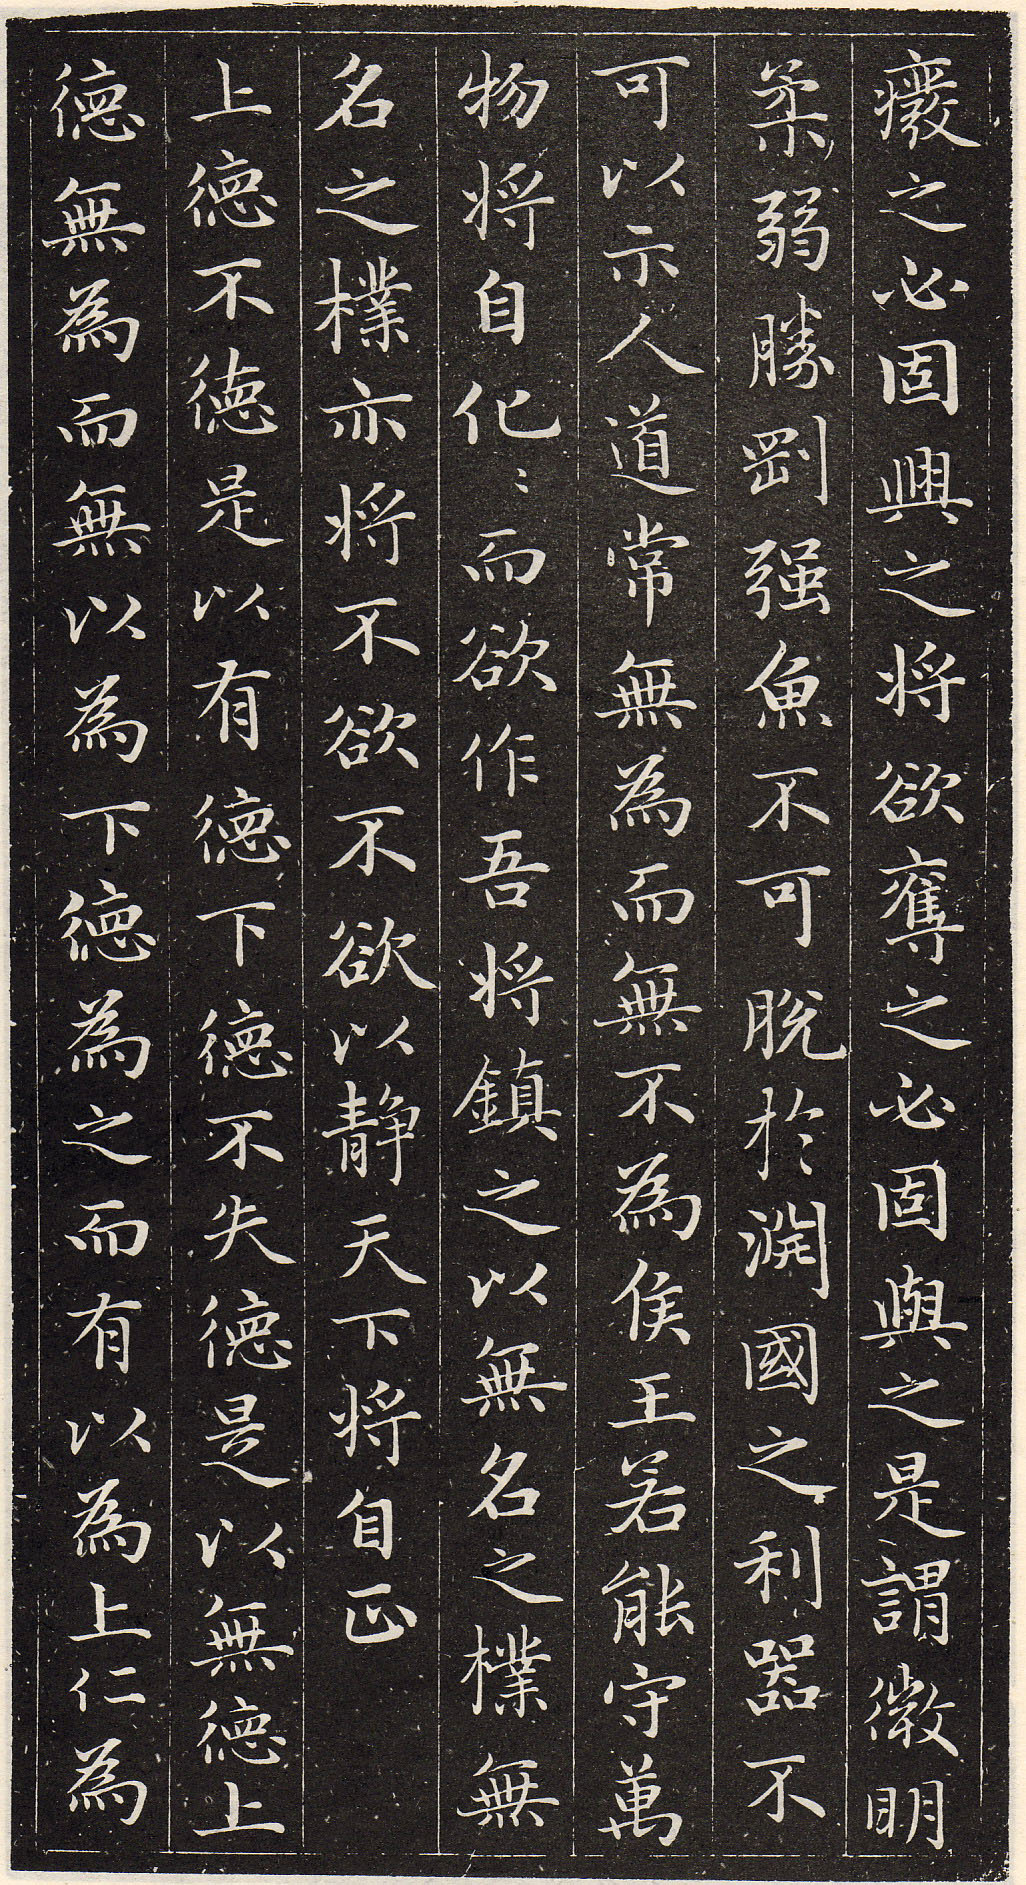 癈之必固興之將欲奪之必固與之是謂微明
柔弱勝剛强魚不可脫於淵國之利器不
可以示人道常無為而無不為侯王若能守萬
物將自化〻而欲作吾將鎮之以無名之樸無
名之樸亦將不欲不欲以静天下將自正
上德不德是以有德下德不失德是以無德上
德無為而無以為下德為之而有以為上仁為